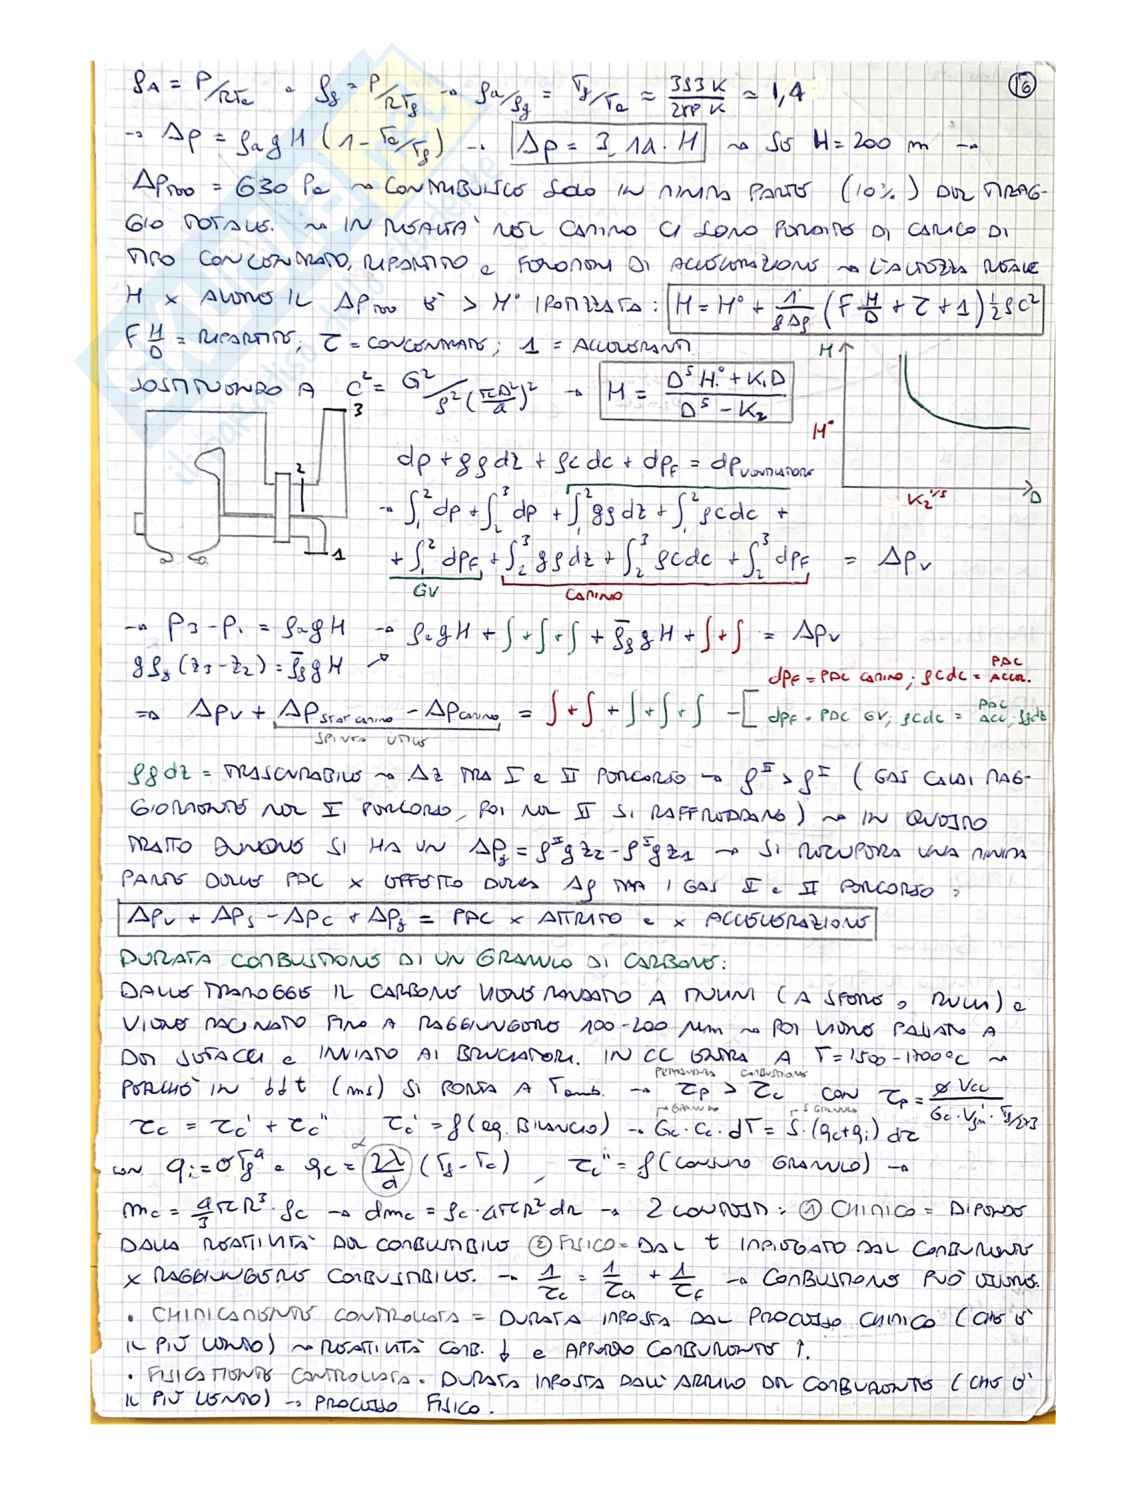 16
ρA = P/RTa e ρg = P/RTg → ρa/ρg = Tg/Ta ≈ 393 K/288 K ≈ 1,4
→ Δp = ρa g H (1 - Ta/Tg) → Δp = 3,14 · H → SE H = 200 m →
ΔP = 630 Pa → CONTRIBUISCE SOLO IN MINIMA PARTE (10%) DEL TIRAG-
GIO TOTALE. → IN REALTÀ NEL CAMINO CI SONO PERDITE DI CARICO DI
TIPO CONCENTRATO, RIPARTITO e FENOMENI DI ACCELERAZIONE → L'ALTEZZA REALE
H X AVERE IL ΔP È > H° IPOTIZZATA: H = H° + 1/gΔρ (F H/D + τ + 1) 1/2 ρc²
F H/D = RIPARTITE; τ = CONCENTRATE; 1 = ACCELERANTI.
SOSTITUENDO A c² = G²/ρ²(πD²/4)² → H = D⁵H° + K₁D / D⁵ - K₂
H
H°
K₂^1/5
D
3
2
1
dp + gρdz + ρcdc + dpF = dpVENTILATORE
→ ∫₁² dp + ∫₂³ dp + ∫₁² gρdz + ∫₁² ρcdc +
+ ∫₁² dpF + ∫₂³ gρdz + ∫₂³ ρcdc + ∫₂³ dpF = Δpv
GV
CAMINO
→ P3 - P1 = ρa g H → ρa g H + ∫ + ∫ + ∫ + ρ̄g g H + ∫ + ∫ = Δpv
gρg (z3 - z2) = ρ̄g g H
dpF = PDC CAMINO; ρcdc = PDC ACCEL.
⇒ Δpv + ΔpSTAT CAMINO - ΔpCAMINO = ∫ + ∫ + ∫ + ∫ + ∫ → [ dpF = PDC GV; ρcdc = PDC ACC, ρgdz
SPINTA UTILE
ρgdz = TRASCURABILE → Δz TRA I e II PERCORSO → ρᴵᴵ > ρᴵ (GAS CALDI MAG-
GIORMENTE NEL I PERCORSO, POI NEL II SI RAFFREDDANO) → IN QUESTO
TRATTO DUNQUE SI HA UN Δpg = ρᴵᴵgz2 - ρᴵgz1 → SI RECUPERA UNA MINIMA
PARTE DELLE PDC X EFFETTO DELLA Δρ TRA I GAS I e II PERCORSO:
ΔPv + ΔPs - ΔPc + ΔPg = PDC X ATTRITO e X ACCELERAZIONE
DURATA COMBUSTIONE DI UN GRANULO DI CARBONE:
DALLE TRAMOGGE IL CARBONE VIENE MANDATO A MULINI (A SFERE, RULLI) e
VIENE MACINATO FINO A RAGGIUNGERE 100-200 μm → POI VIENE PASSATO A
DEI SETACCI e INVIATO AI BRUCIATORI. IN CC ENTRA A T = 1500-1700°C →
PERCHÉ IN ddt (ms) SI PORTA A Tamb. → τp > τc CON τp = φ Vcc / Gc · V · Tg/273
PERMANENZA COMBUSTIONE
τc = τc' + τc'' τc' = f(eq. BILANCIO) → Gc · Cc · dT = S · (qc + qi) dτ
GRANULO S GRANULO
CON qi = σTg⁴ e qc = (2λ/d) (Tg - Tc), τc'' = f(CONSUMO GRANULO) →
α
mc = 4/3 πR³ · ρc → dmc = ρc · 4πR² dR → 2 CONTRIBUTI: ① CHIMICO = DIPENDE
DALLA REATTIVITÀ DEL COMBUSTIBILE ② FISICO = DAL t IMPIEGATO DAL COMBURENTE
X RAGGIUNGERE COMBUSTIBILE. → 1/τc = 1/τa + 1/τF → COMBUSTIONE PUÒ VENIRE:
• CHIMICAMENTE CONTROLLATA = DURATA IMPOSTA DAL PROCESSO CHIMICO (CHE È
IL PIÙ LENTO) → REATTIVITÀ COMB. ↓ e APPORTO COMBURENTE ↑.
• FISICAMENTE CONTROLLATA = DURATA IMPOSTA DALL'ARRIVO DEL COMBURENTE (CHE È
IL PIÙ LENTO) → PROCESSO FISICO.